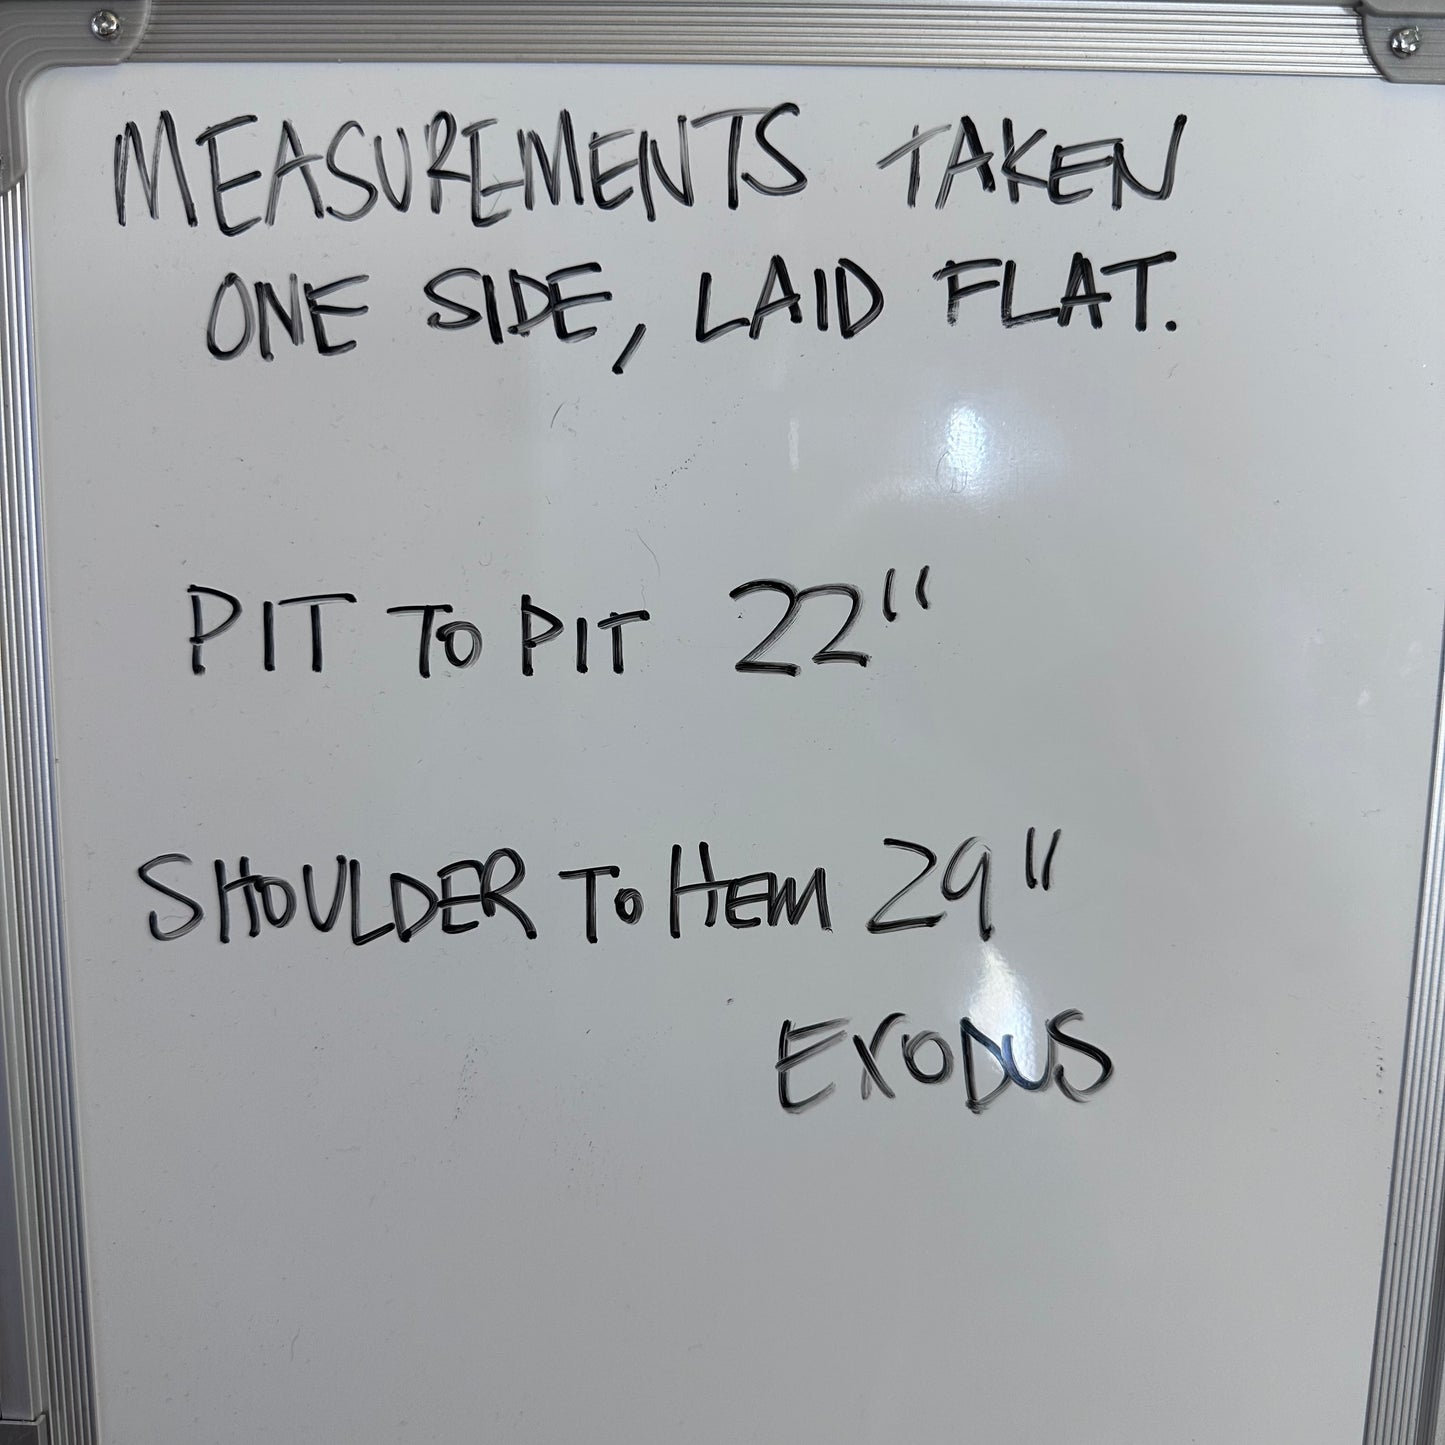 MEASUREMENTS TAKEN
ONE SIDE, LAID FLAT.
PIT TO PIT 22"
SHOULDER TO HEM 29"
EXODUS